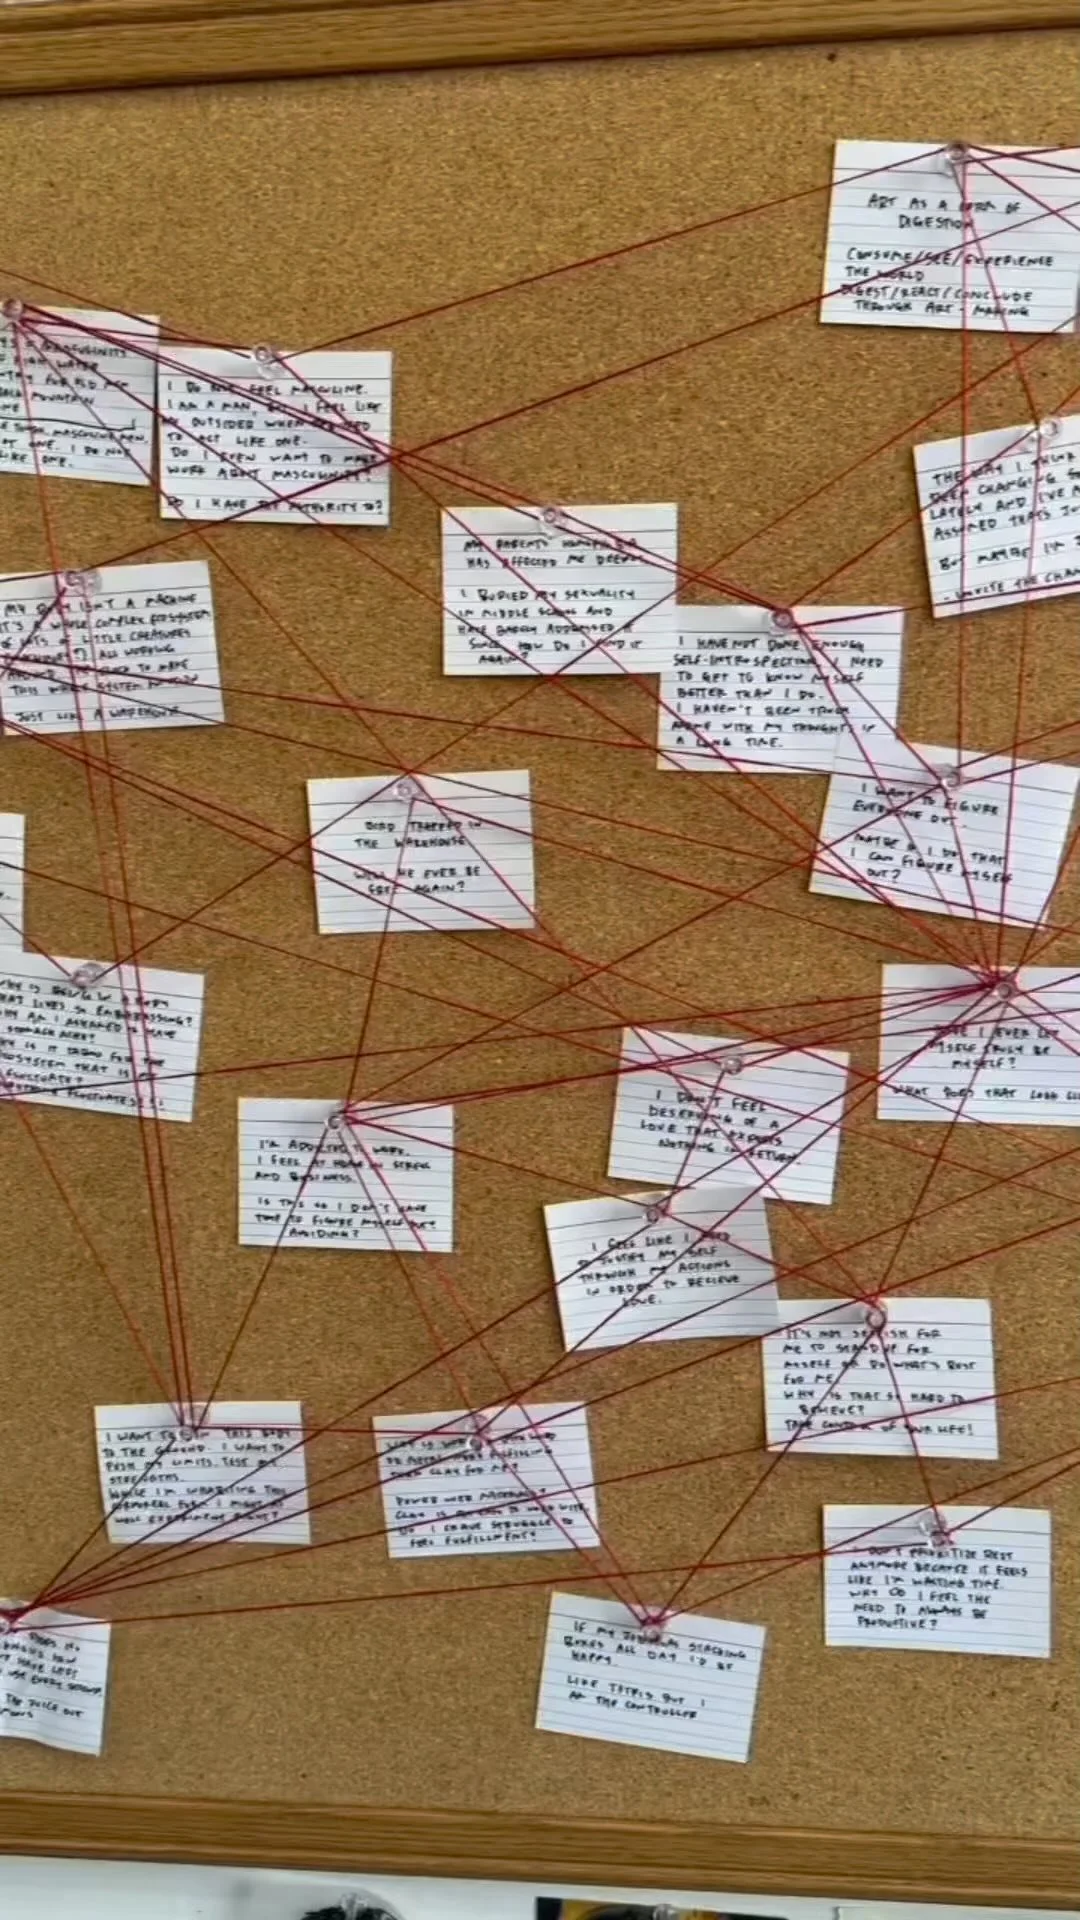 ART AS A FORM OF
DIGESTION
CONSUME/SEE/EXPERIENCE
THE WORLD
DIGEST/REACT/CONCLUDE
THROUGH ART-MAKING
MASCULINITY
HIGH WATER
COUNTRY FOR OLD MEN
MOUNTAIN
MASCULINE MEN,
ONE. I DO NOT
LIKE ONE.
I DO NOT FEEL MASCULINE.
I AM A MAN, BUT I FEEL LIKE
OUTSIDER WHEN
TO ACT LIKE ONE.
DO I EVEN WANT TO MAKE
WORK ABOUT MASCULINITY?
DO I HAVE THE AUTHORITY TO?
THE WAY I THINK
BEEN CHANGING
LATELY AND I'VE
ASSUMED THAT'S
BUT MAYBE I'M
- INVITE THE
MY PARENTS HOMOPHOBIA
HAS AFFECTED ME DEEPLY
I BURIED MY SEXUALITY
IN MIDDLE SCHOOL AND
HAVE BARELY ADDRESSED IT
SINCE. HOW DO I FIND IT
AGAIN?
MY BODY ISN'T A MACHINE
IT'S A WHOLE COMPLEX ECOSYSTEM
OF LOTS OF LITTLE CREATURES
ALL WORKING
TO MAKE
THIS WHOLE SYSTEM FUNCTION
JUST LIKE A WAREHOUSE
I HAVE NOT DONE ENOUGH
SELF-INTROSPECTION. I NEED
TO GET TO KNOW MYSELF
BETTER THAN I DO.
I HAVEN'T BEEN TRULY
ALONE WITH MY THOUGHTS IN
A LONG TIME.
I WANT TO FIGURE
EVERYONE OUT.
MAYBE IF I DO THAT
I CAN FIGURE MYSELF
OUT?
BIRD TRAPPED IN
THE WAREHOUSE
WILL HE EVER BE
FREE AGAIN?
WHY IS BEING IN A BODY
THAT LIVES SO EMBARRASSING?
WHY AM I ASHAMED TO HAVE
STOMACH ACHE?
WHY IS IT TABOO FOR THE
ECOSYSTEM THAT IS ME
FLUCTUATE?
FLUCTUATES!!!
I EVER LET
MYSELF TRULY BE
MYSELF?
WHAT DOES THAT LOOK
I DON'T FEEL
DESERVING OF A
LOVE THAT EXPECTS
NOTHING IN RETURN.
I'M ADDICTED TO WORK.
I FEEL AT HOME IN STRESS
AND BUSINESS.
IS THIS SO I DON'T HAVE
TIME TO FIGURE MYSELF OUT?
AVOIDING?
I FEEL LIKE I NEED
TO JUSTIFY MYSELF
THROUGH MY ACTIONS
IN ORDER TO RECIEVE
LOVE.
IT'S NOT SELFISH FOR
ME TO STAND UP FOR
MYSELF OR DO WHAT'S BEST
FOR ME.
WHY IS THAT SO HARD TO
BELIEVE?
TAKE CONTROL OF OUR LIFE!
I WANT TO RUN THIS BODY
TO THE GROUND. I WANT TO
PUSH MY LIMITS. TEST MY
STRENGTHS.
WHILE I'M INHABITING THIS
CORPOREAL FORM I MIGHT AS
WELL EXPERIMENT RIGHT?
WHY IS
OR METAL MORE FULFILLING
THAN CLAY FOR ME?
POWER OVER MATERIAL?
CLAY IS TO WORK WITH,
DO I CRAVE STRUGGLE TO
FEEL FULFILLMENT?
I DON'T PRIORITIZE REST
ANYMORE BECAUSE IT FEELS
LIKE I'M WASTING TIME.
WHY DO I FEEL THE
NEED TO ALWAYS BE
PRODUCTIVE?
HAVE LEFT
USE EVERY
THE JUICE OUT
IF MY JOB WAS STACKING
BOXES ALL DAY I'D BE
HAPPY.
LIKE TETRIS BUT I
AM THE CONTROLLER